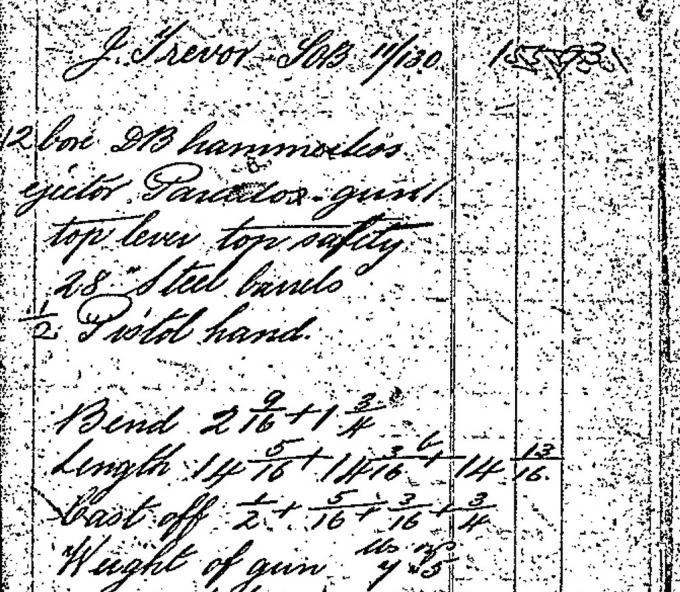 J. Trevor SOB 11/130 15533
12 bore DB hammerless
ejector Paradox gun
top lever top safety
28" Steel barrels
1/2 Pistol hand.
Bend 2 9/16 + 1 3/4
Length 14 5/16 + 14 3/16 + 14 13/16
Cast off 1/2 + 5/16 + 3/16 + 3/4
Weight of gun lbs 7